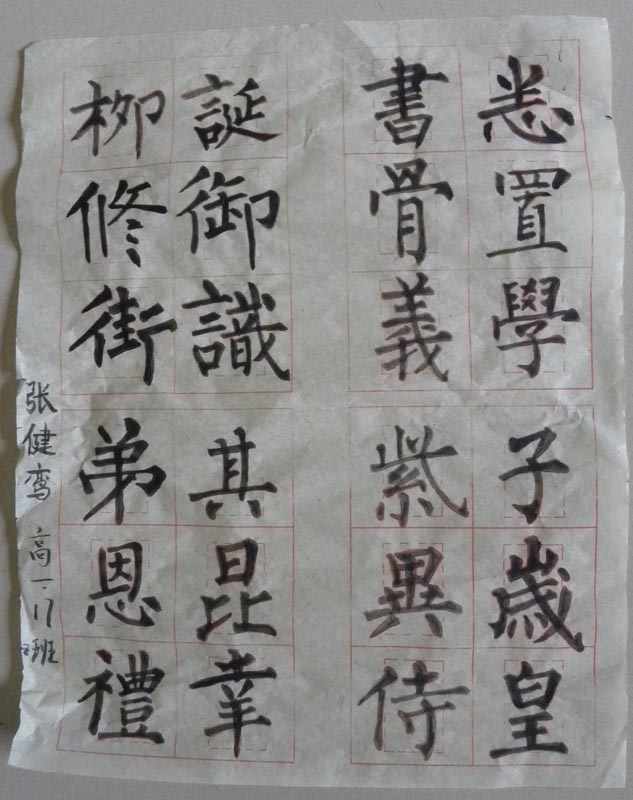 置學子歲皇
書骨義紫異侍
誕御識其昆幸
柳修街弟恩禮
张健鸾 高一.17班